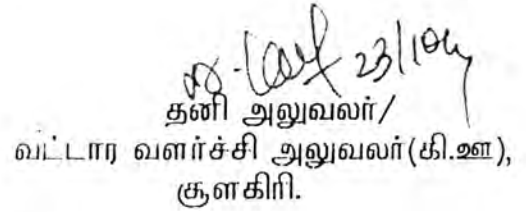 23/10/
தனி அலுவலர்/
வட்டார வளர்ச்சி அலுவலர்(கி.ஊ),
சூளகிரி.